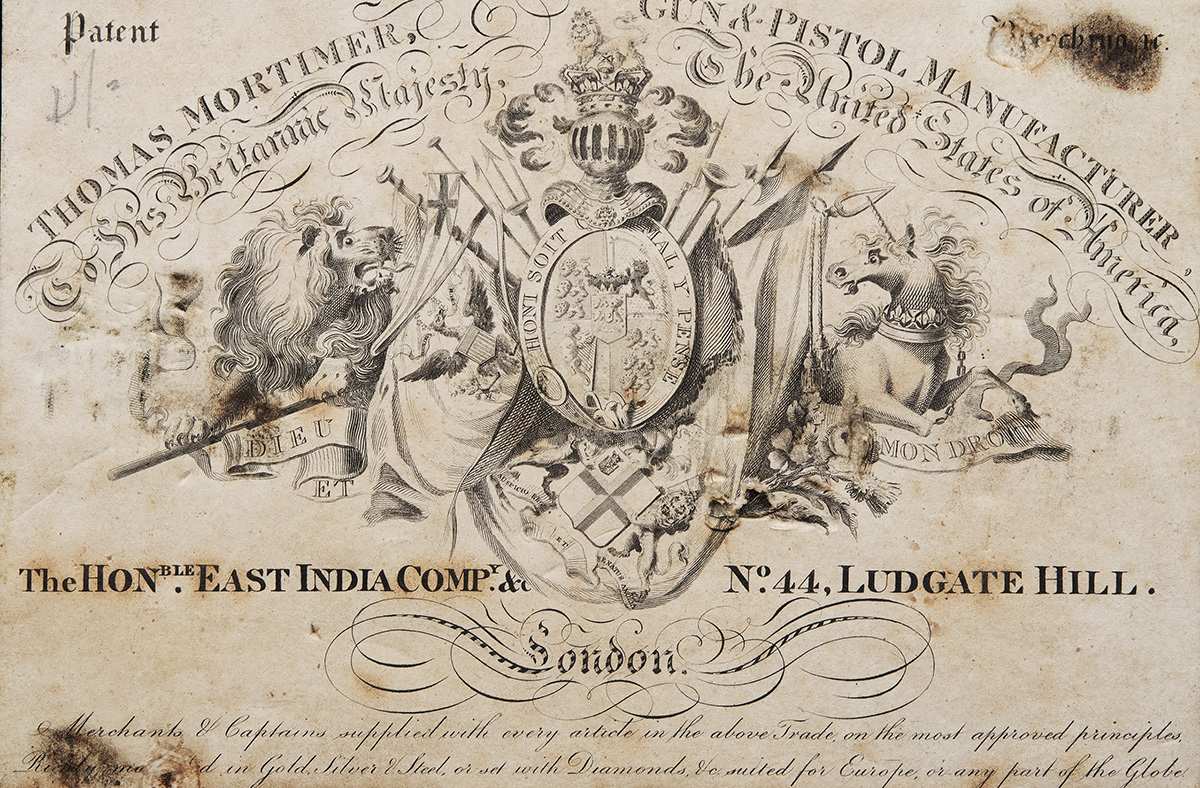 Patent
THOMAS MORTIMER, GUN & PISTOL MANUFACTURER
To His Britannic Majesty, The United States of America,
HONI SOIT MAL Y PENSE
DIEU
ET
MON DROIT
AUSPICIO
ET
The HON.BLE EAST INDIA COMP.Y &c
No. 44, LUDGATE HILL.
London.
Merchants & Captains supplied with every article in the above Trade, on the most approved principles,
in Gold, Silver & Steel, or set with Diamonds, &c. suited for Europe, or any part of the Globe